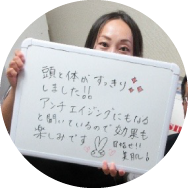 頭と体がすっきり
しました!!
アンチエイジングにもなる
と聞いているので効果も
楽しみです
目指せ!!
美肌